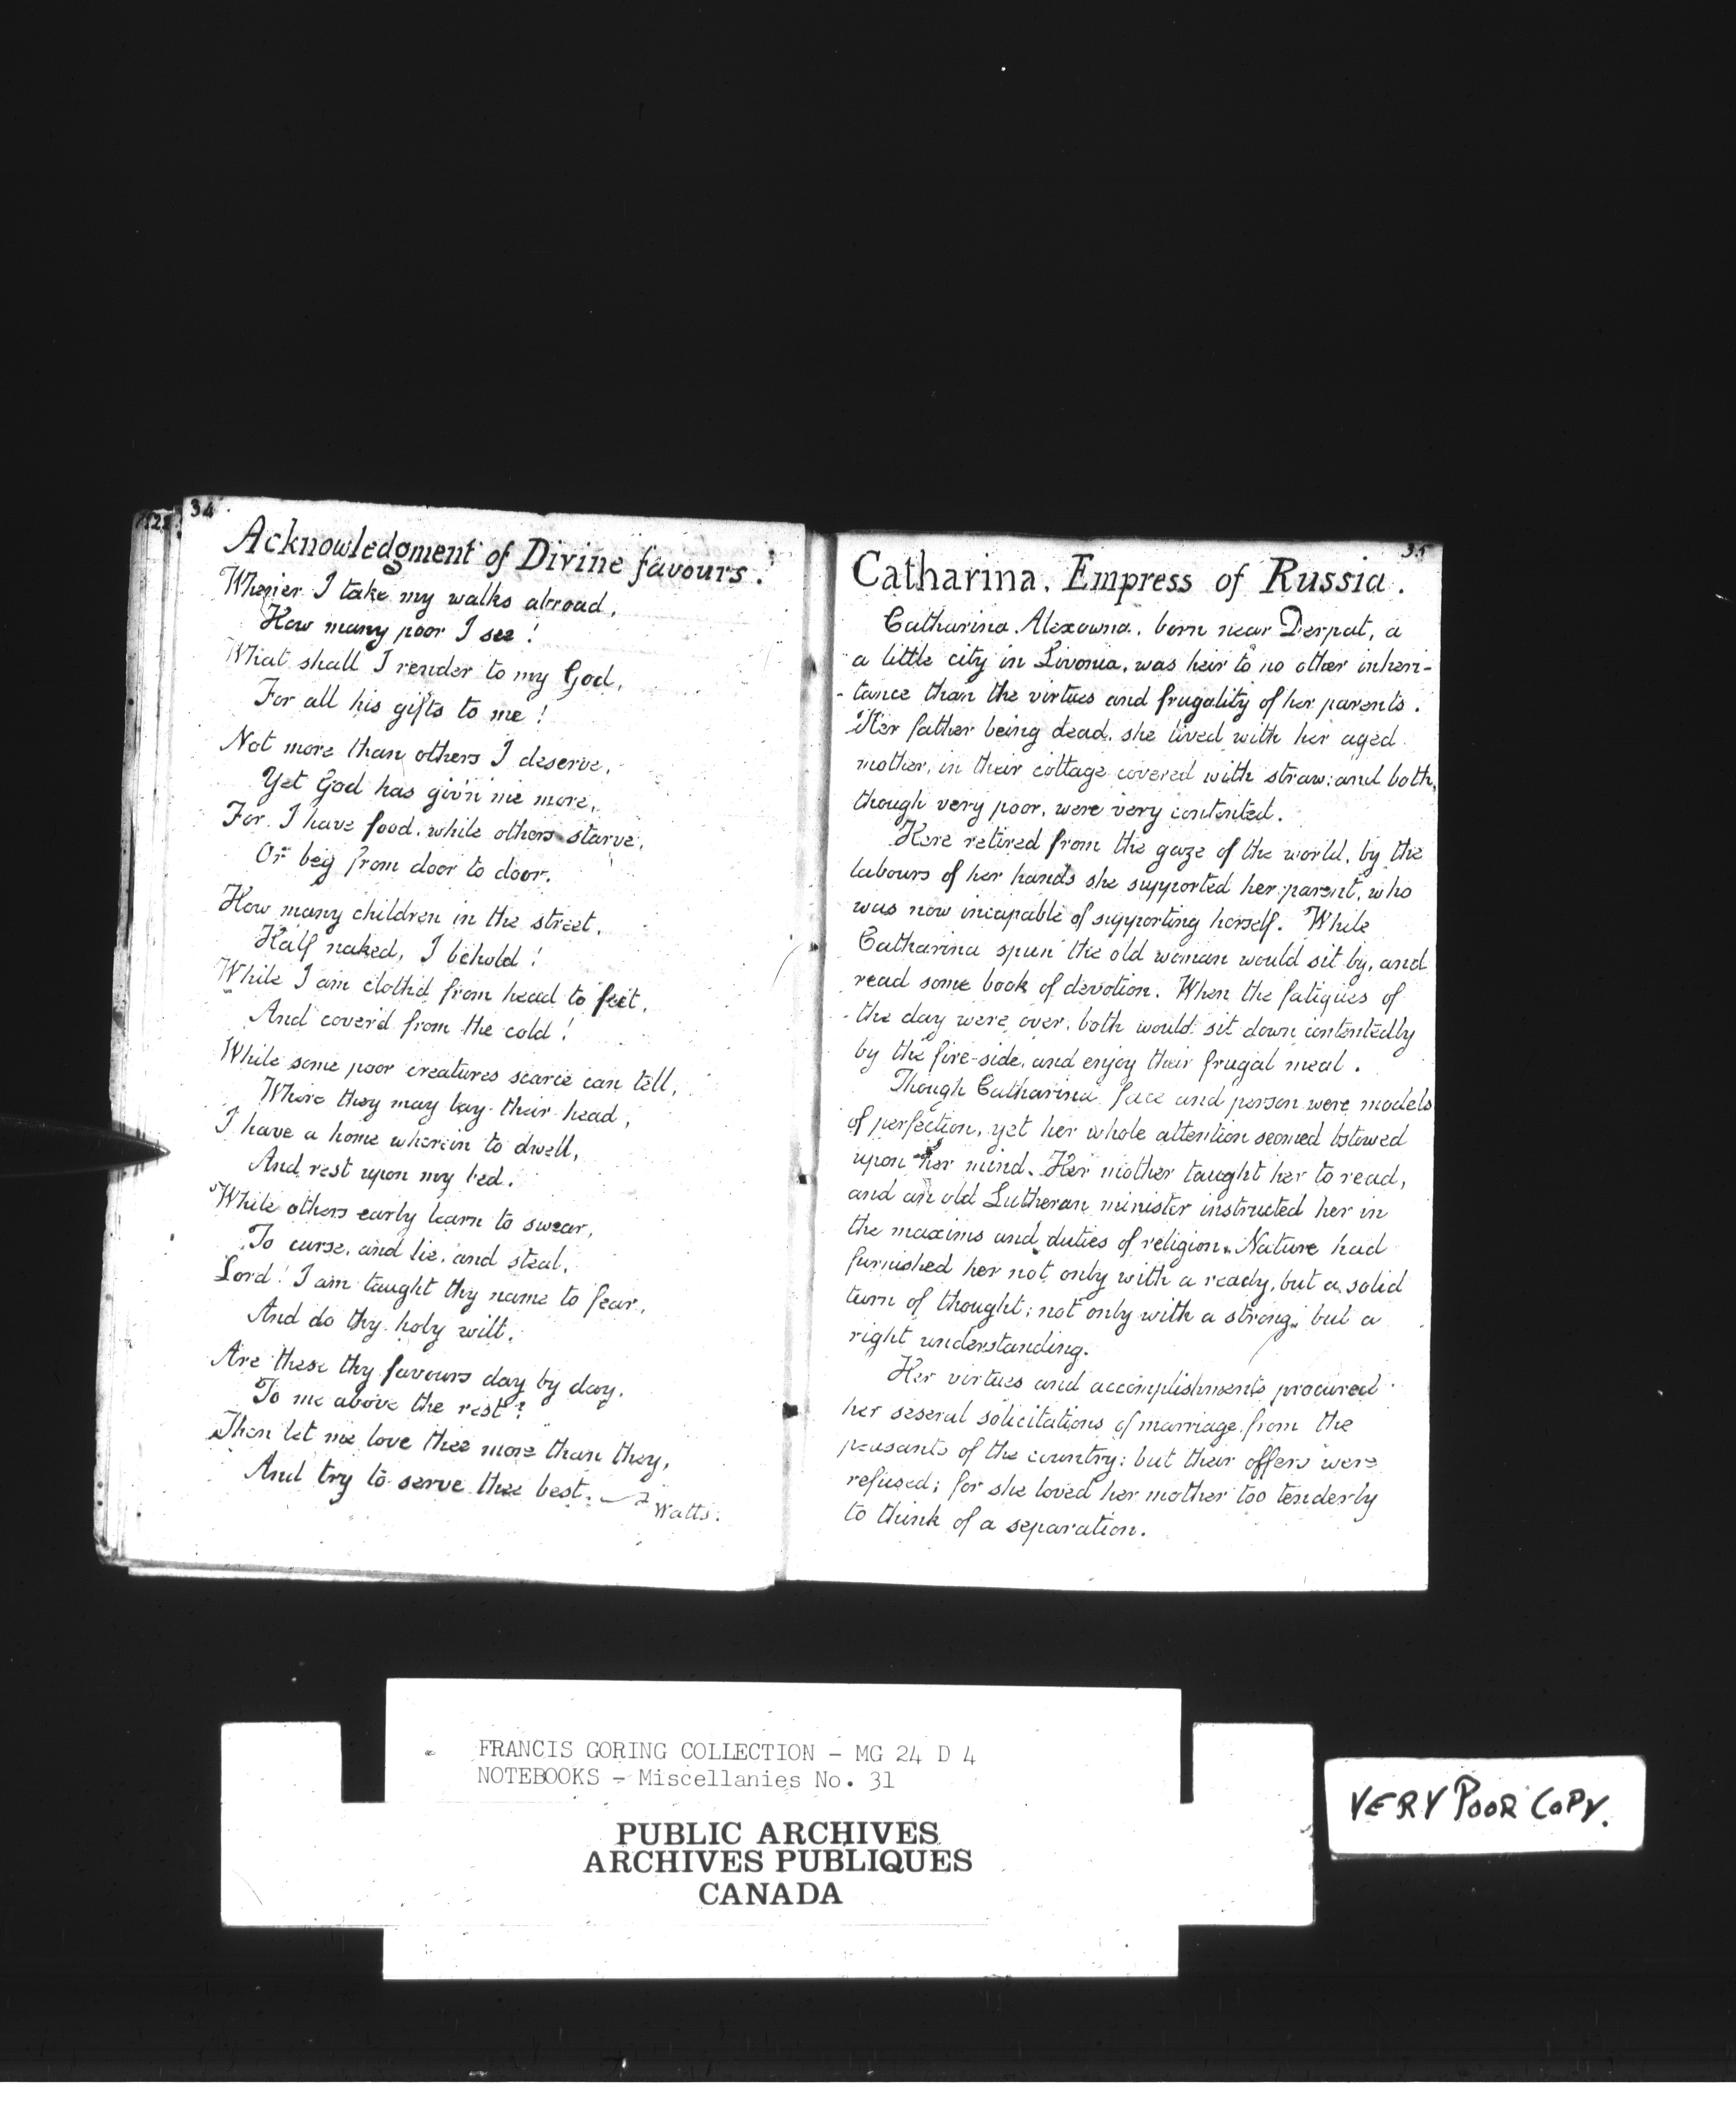 34
Acknowledgment of Divine favours.
Whene'er I take my walks abroad,
How many poor I see!
What shall I render to my God,
For all his gifts to me!
Not more than others I deserve,
Yet God has giv'n me more,
For I have food, while others starve,
Or beg from door to door.
How many children in the street,
Half naked, I behold!
While I am cloth'd from head to feet,
And cover'd from the cold!
While some poor creatures scarce can tell,
Where they may lay their head,
I have a home wherein to dwell,
And rest upon my bed.
While others early learn to swear,
To curse, and lie, and steal,
Lord! I am taught thy name to fear,
And do thy holy will.
Are these thy favours day by day,
To me above the rest?
Then let me love thee more than they,
And try to serve thee best. — I
Watts.
35
Catharina, Empress of Russia.
Catharina Alexowna, born near Derpat, a
a little city in Livonia, was heir to no other inheri-
-tance than the virtues and frugality of her parents.
Her father being dead, she lived with her aged
mother, in their cottage covered with straw; and both,
though very poor, were very contented.
Here retired from the gaze of the world, by the
labours of her hands she supported her parent, who
was now incapable of supporting herself. While
Catharina spun the old woman would sit by, and
read some book of devotion. When the fatigues of
the day were over, both would sit down contentedly
by the fire-side, and enjoy their frugal meal.
Though Catharina face and person were models
of perfection, yet her whole attention seemed bstowed
upon her mind. Her mother taught her to read,
and an old Lutheran minister instructed her in
the maxims and duties of religion. Nature had
furnished her not only with a ready, but a solid
turn of thought; not only with a strong, but a
right understanding.
Her virtues and accomplishments procured
her several solicitations of marriage from the
peasants of the country; but their offers were
refused; for she loved her mother too tenderly
to think of a separation.
FRANCIS GORING COLLECTION - MG 24 D 4
NOTEBOOKS - Miscellanies No. 31
PUBLIC ARCHIVES
ARCHIVES PUBLIQUES
CANADA
VERY POOR COPY.